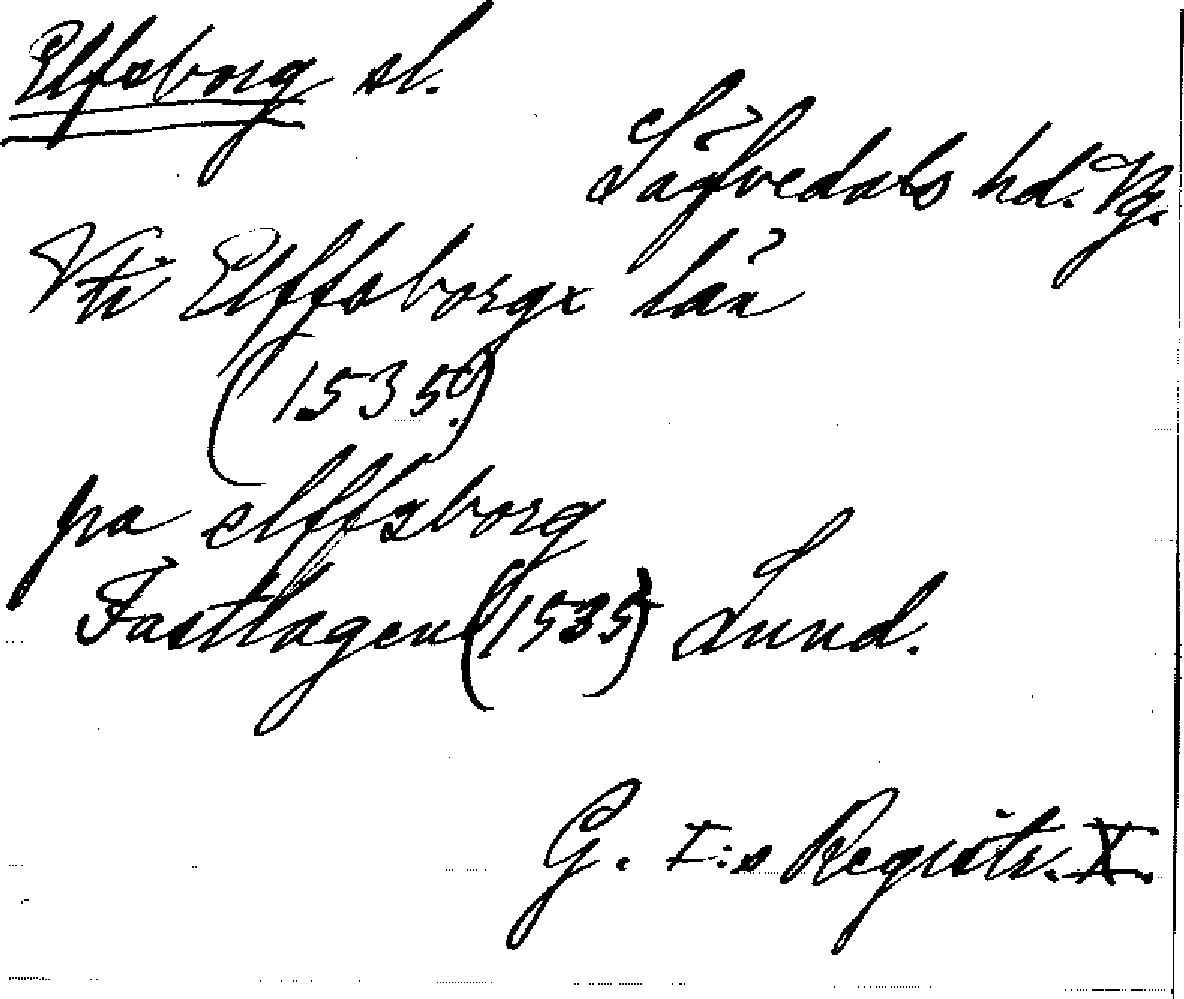 Elfsborg sl.
Säfvedals hd. Vg.
Vti Elffsborgx län
(1535?)
pa elffzborg
Fastlagen (1535) Lund.
G. I:s Registr. X.